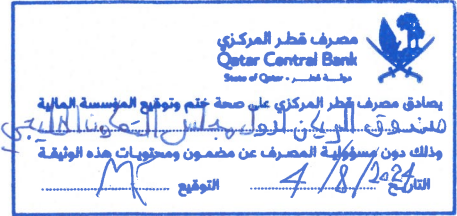 مصرف قطر المركزي
Qatar Central Bank
State of Qatar - دولة قطر
يصادق مصرف قطر المركزي على صحة ختم وتوقيع المؤسسة المالية
صندوق الريكن لدول مجلس التعاون الخليجي
وذلك دون مسؤولية المصرف عن مضمون ومحتويات هذه الوثيقة
التاريخ 4/8/2024 التوقيع